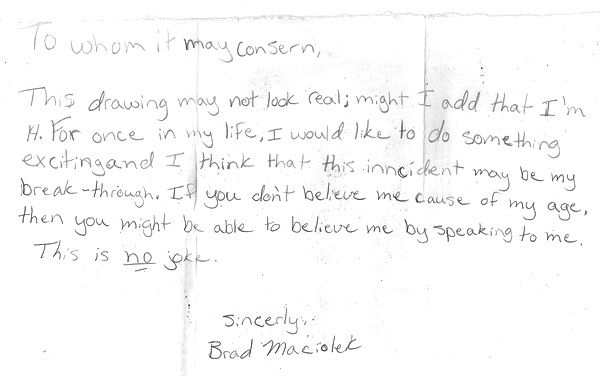 To whom it may consern,
This drawing may not look real; might I add that I'm
14. For once in my life, I would like to do something
exciting and I think that this inncident may be my
break-through. If you don't believe me cause of my age,
then you might be able to believe me by speaking to me.
This is no joke.
Sincerly,
Brad Maciolek